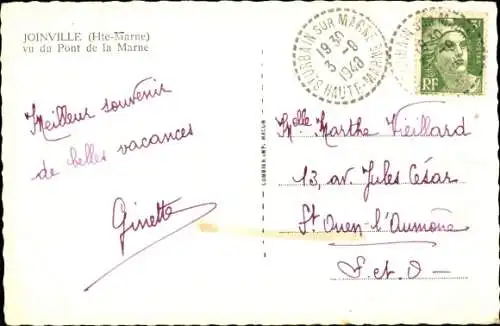 JOINVILLE (Hte-Marne)
vu du Pont de la Marne
ST URBAIN SUR MARNE
19 30
3 - 8
1948
HAUTE-MARNE
RF
Meilleur souvenir
de belles vacances
Ginette
Melle Marthe Vieillard
13, av. Jules César
St Ouen-l'Aumône
S. et. O -